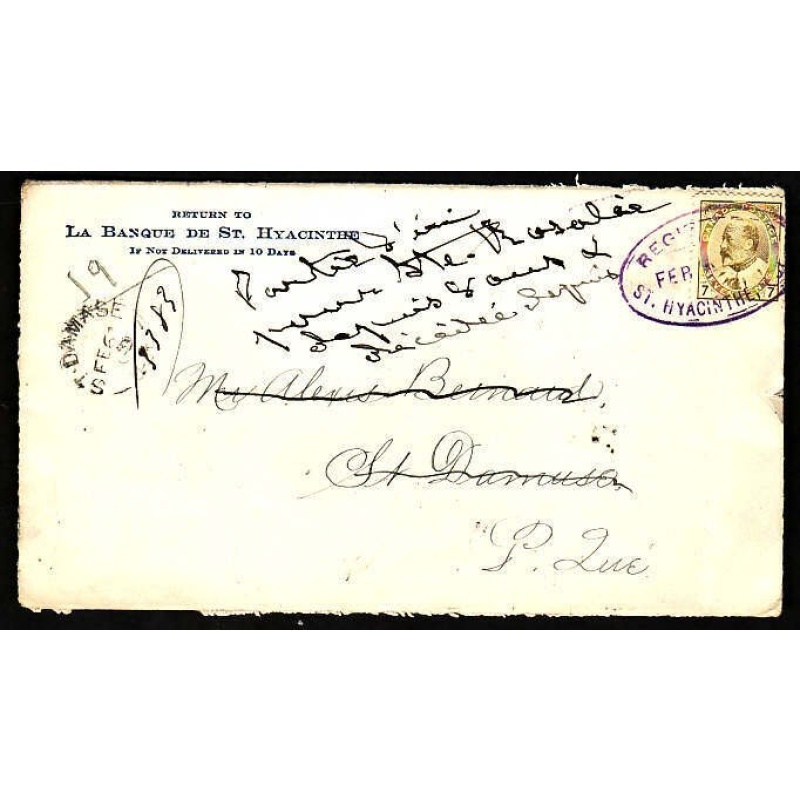 RETURN TO
LA BANQUE DE ST. HYACINTHE
IF NOT DELIVERED IN 10 DAYS
19
DAMASE
FE 6
REGIS
FEB
ST. HYACINTHE
7 7
d'ici
pour Ste. Rosalie
depuis 2 ans &
décédée depuis
Mr Alexis Bernard,
St Damase
P. Qué